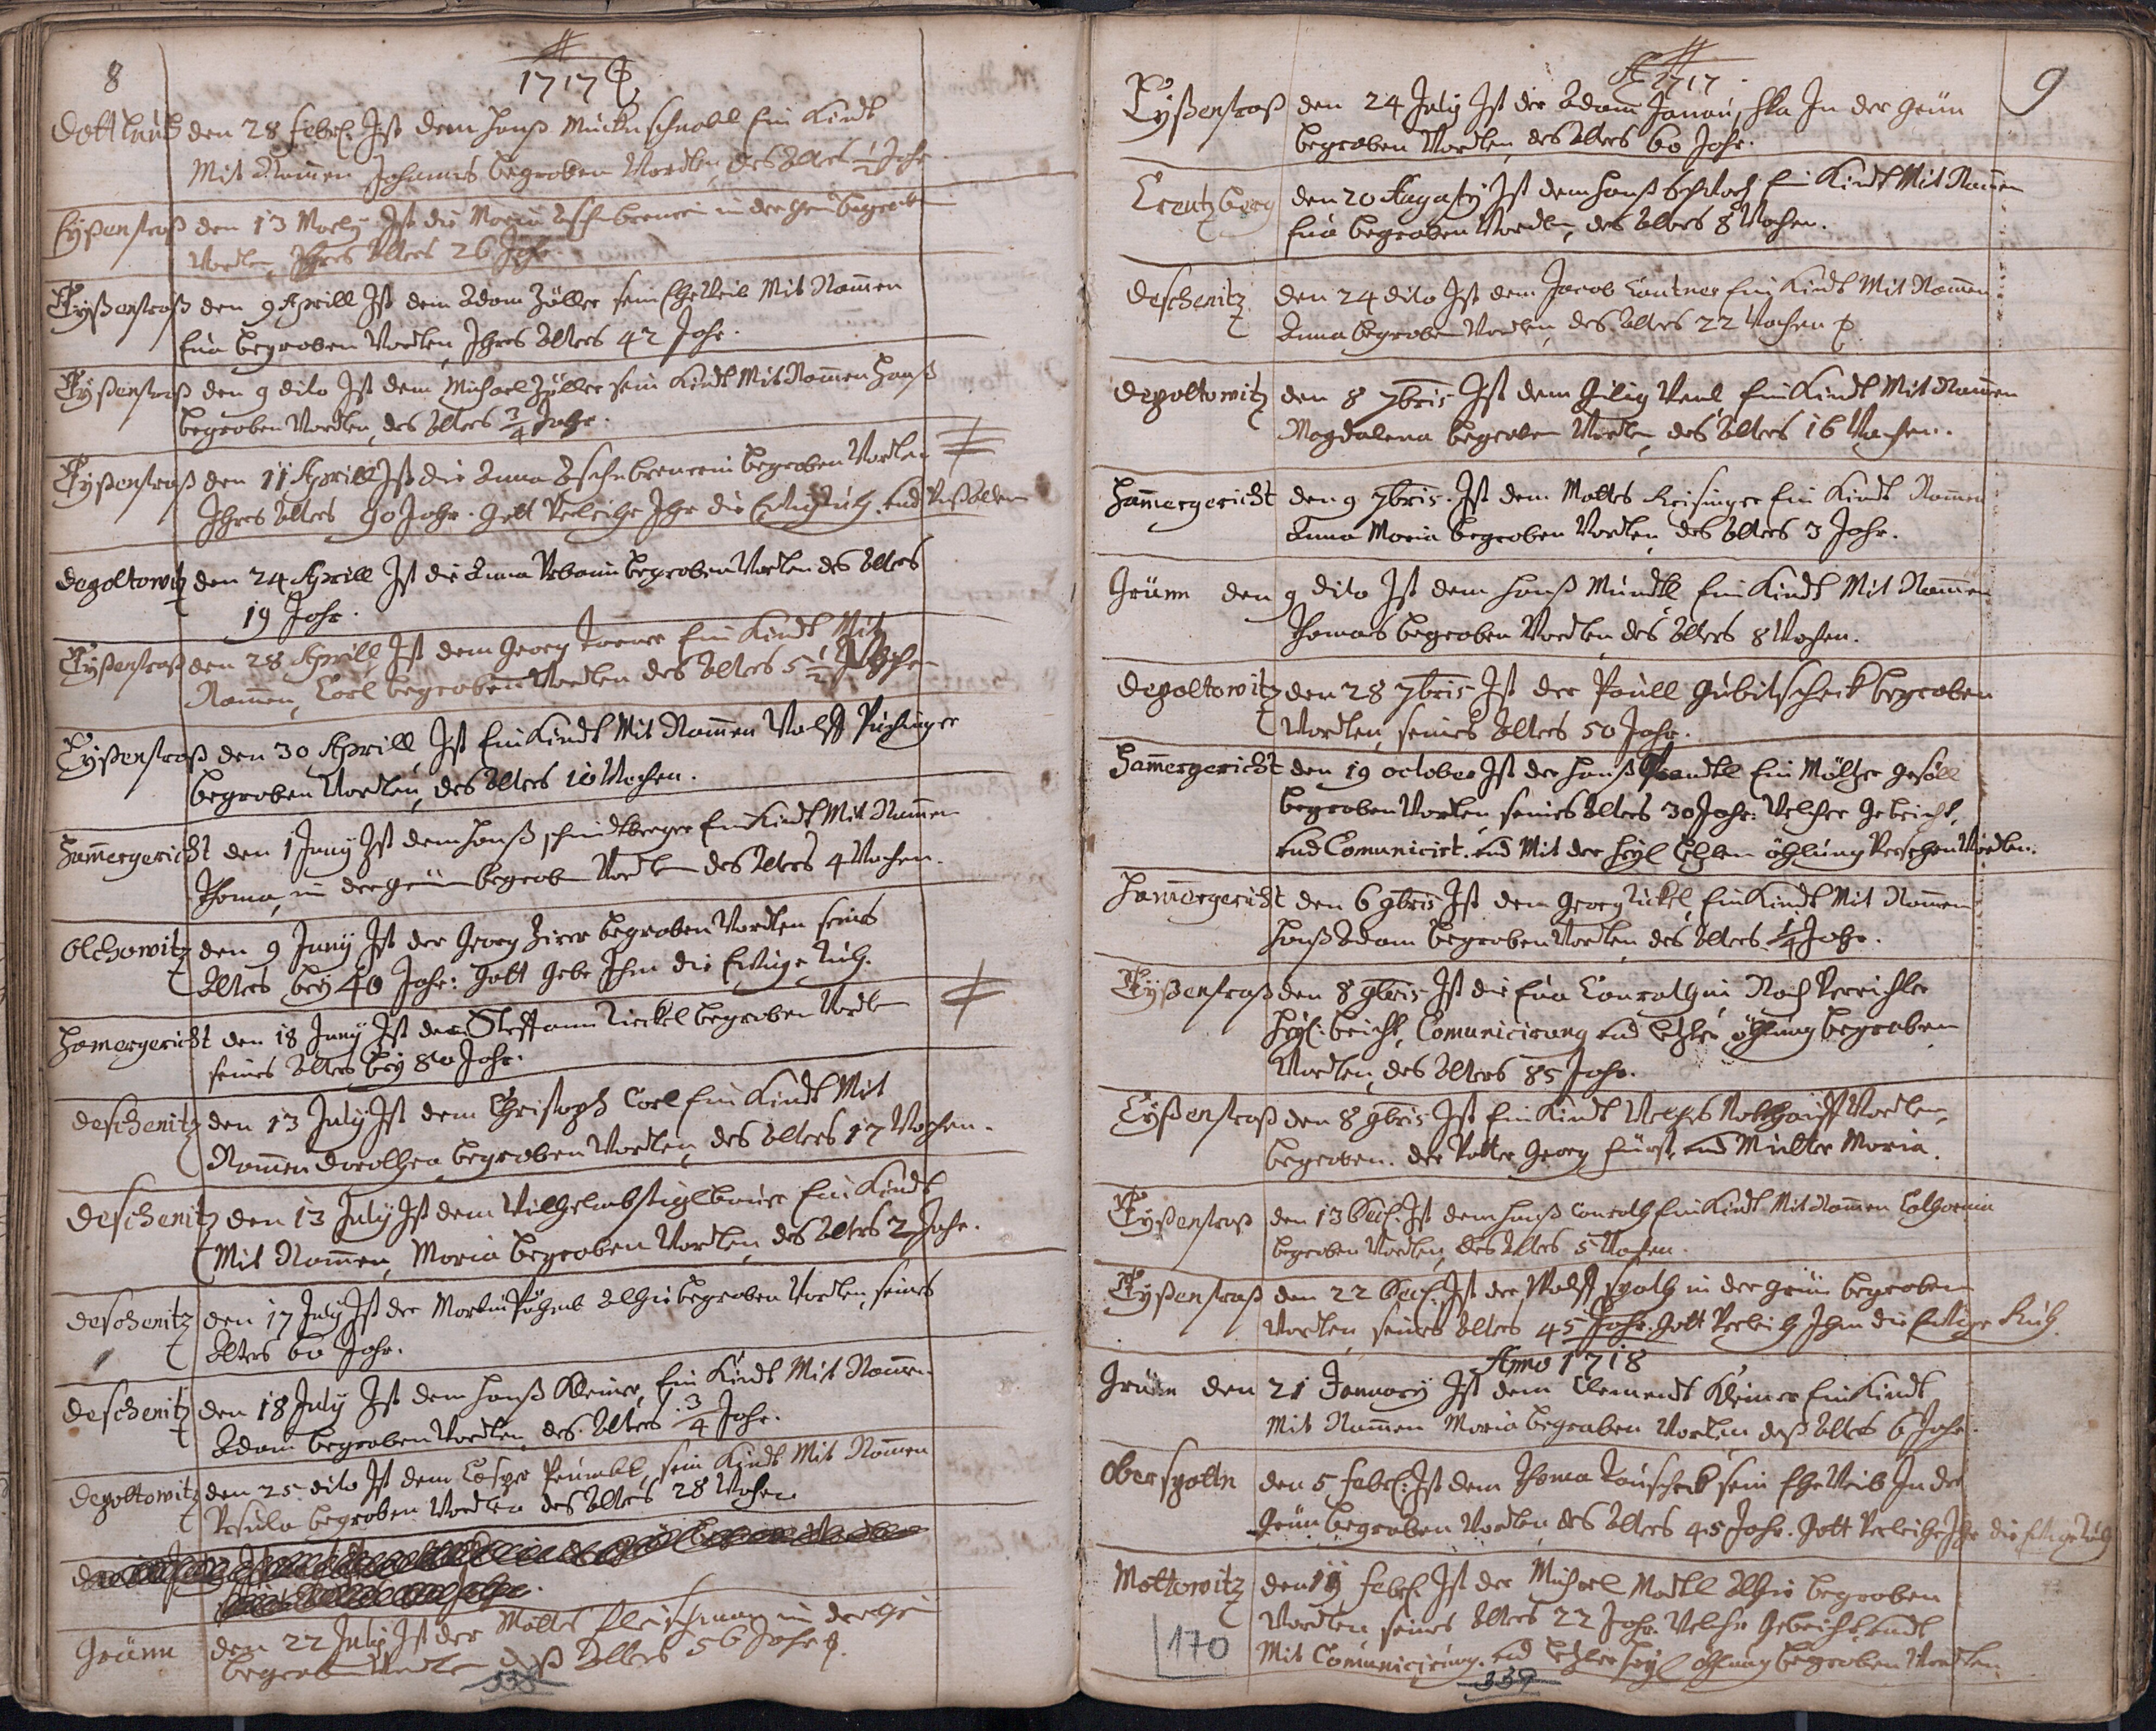 8
1717
Dottlaub den 28 Febr: Ist dem Hanß Muknschnabl Ein Kindt
Mit Namen Johannes begraben Wordten, des Alters 1/2 Jahr
Eyßenstraß den 13 Marty Ist die Maria Aschnbrenerin in der Grün begraben
Wordten, Ihres Alters 26 Jahr
Eyßenstraß den 9 Aprill Ist dem Adam Zöller sein Eheweib Mit Namen
Eua begraben Wordten, Ihres Alters 42 Jahr.
Eyßenstraß den 9 dito Ist dem Michael Zöller sein Kindt Mit Namen Hanß
begraben Wordten, des Alters 3/4 Jahr.
Eyßenstraß den 11 Aprill Ist die Anna Aschnbrenerin begraben Wordten
Ihres Alters 90 Jahr. Gott Verleihe Ihr die Ewig Ruh.
Depoltowitz den 24 Aprill Ist die Anna Urbanin begraben Worten des Alters
19 Jahr.
Eyßenstraß den 28 Aprill Ist dem Georg Ein Kindt Mit
Namen, Carl begraben Wordten des Alters 5 1/2
Eyßenstraß den 30 Aprill, Ist Ein Kindt Mit Namen Wolff Puchinger
begraben Wordten, des Alters 10 Wochen.
Hamergericht den 1 Juny Ist dem Hanß Schmidtberger Ein Kindt Mit Namen
Thoma, in der Grün begraben Wordten des Alters 4 Wochen.
Olchowitz den 9 Juny Ist der Georg begraben Wordten seines
Alters bey 40 Jahr: Gott gebe Ihm die Ewige Ruh.
Hamergericht den 18 Juny Ist der Steffann Rickel begraben Wordten
seines Alters bey 80 Jahr.
Deschenitz den 13 July Ist dem Christoph Carl Ein Kindt Mit
Namen Dorothea begraben Wordten, des Alters 17 Wochen.
Deschenitz den 13 July Ist dem Wilhelmb Stiglbauer Ein Kindt
Mit Namen, Maria begraben Wordten, des Alters 2 Jahr.
Deschenitz den 17 July Ist der Martin Alhie begraben Wordten, seines
Alters 60 Jahr.
Deschenitz den 18 July Ist dem Hanß Kleiner, Ein Kindt Mit Namen
Adam begraben Wordten, des Alters 3/4 Jahr.
Depoltowitz den 25 dito Ist dem Casper sein Kindt Mit Namen
Ursula begraben Wordten des Alters 28 Wochen
Grünn den 22 July Ist der Mattes Fleischman in der Grün
begraben Wordten deß Alters 56 Jahr
338
A 1717
9
Eyßenstraß den 24 July Ist der Adam In der Grün
begraben Wordten, des Alters 60 Jahr.
Creutzberg den 20 Augusty Ist dem Hanß Ein Kindt Mit Namen
Eua begraben Wordten, des Alters 8 Wochen.
Deschenitz den 24 dito Ist dem Jacob Lautner Ein Kindt Mit Namen
Anna begraben Wordten, des Alters 22 Wochen
Depoltowitz den 8 7bris Ist dem Gilig Ein Kindt Mit Namen
Magdalena begraben Wordten des Alters 16 Wochen.
Hamergericht den 9 7bris. Ist dem Mattes Reisinger Ein Kindt Namen
Anna Maria begraben Wordten, des Alters 3 Jahr.
Grünn den 9 dito Ist dem Hanß Mündtl Ein Kindt Mit Namen
Thomas begraben Wordten, des Alters 8 Wochen.
Depoltowitz den 28 7bris Ist der Paull Gubitscheck begraben
Wordten, seines Alters 50 Jahr.
Hamergericht den 19 october Ist der Hanß Ein Möltzer gesöll
begraben Worten, seines Alters 30 Jahr. Welcher gebeicht,
und Comunicirt. und Mit der Heyl Letzten öhlung Versehen Wordten.
Hamergericht den 6 9bris Ist dem Georg Rickel, Ein Kindt Mit Namen
Hanß Adam begraben Wordten, des Alters 1/4 Jahr.
Eyßenstraß den 8 9bris Ist die Eua Conrathin Nach Verrichter
Heyl: beicht, Comunicirung und Letzter öhlung begraben
Wordten, des Alters 85 Jahr.
Eyßenstraß den 8 9bris Ist Ein Kindt Welches Nottgetaufft Wordten,
begraben. der Vatter Georg Fürst, und Mutter Maria.
Eyßenstraß den 13 Ist dem Hanß Conrath Ein Kindt Mit Namen Catharina
begraben Wordten, des Alters 5 Wochen.
Eyßenstraß den 22 Ist der Wolff Spath in der Grün begraben
Wordten, seines Alters 45 Jahr. Gott Verleih Ihm die Ewige Ruh
Anno 1718
Grünn den 21 January Ist dem Clementt Kleiner Ein Kindt
Mit Namen Maria begraben Wordten, deß Alters 6 Jahr.
Obersgoltn den 5 Febr: Ist dem Thoma Tauscheck sein Eheweib In der
Grün begraben Wordten, des Alters 45 Jahr. Gott Verleihe Ihr die Ewige Ruh
Mottowitz den 19 Febr: Ist der Michael Madtl Alhie begraben
Wordten seines Alters 22 Jahr. Welcher gebeicht, undt
Mit Comunicirung. und Letzter Heyl öhlung begraben Wordten
170
339